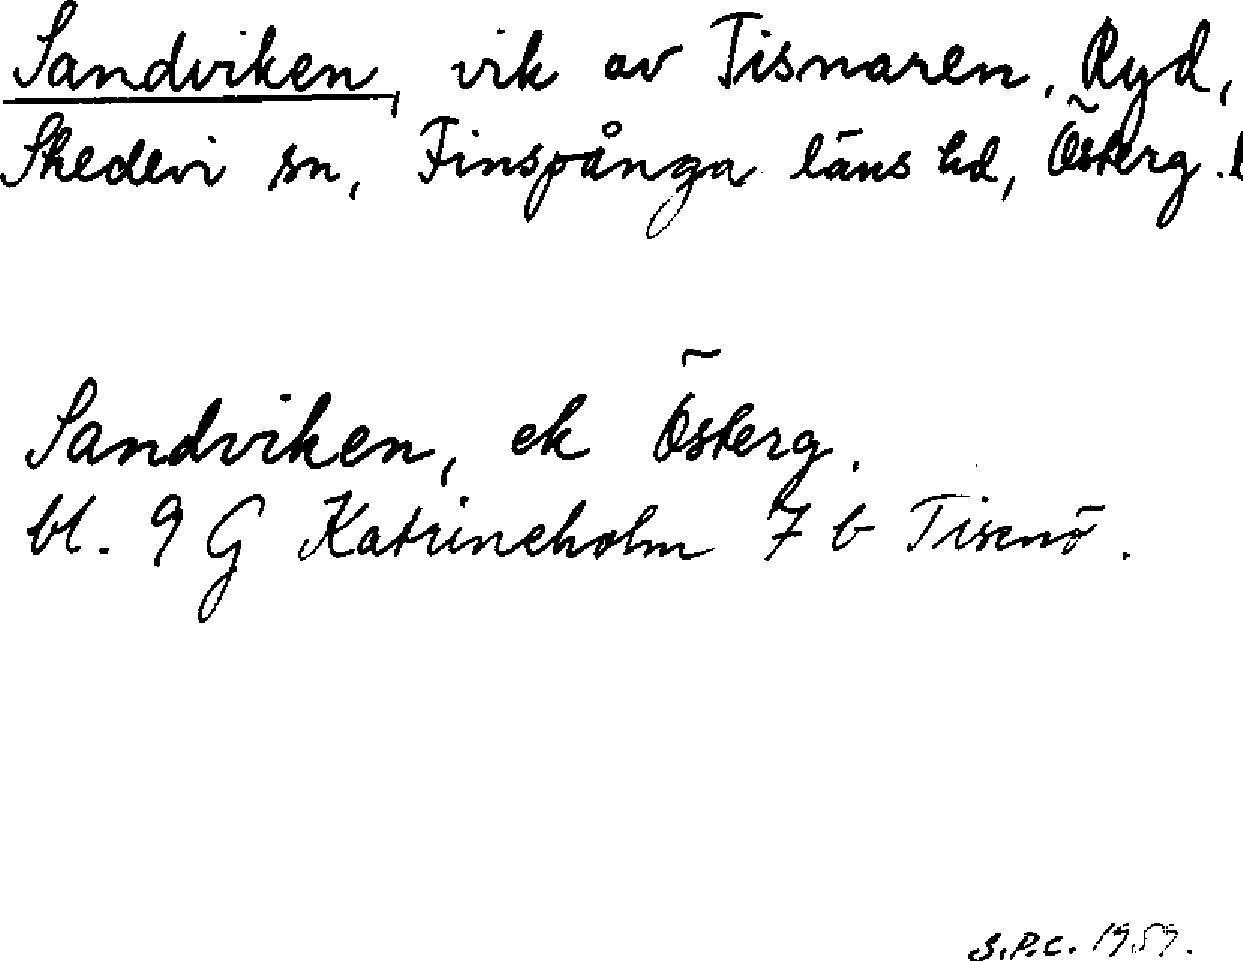 Sandviken, vik av Tisnaren, Ryd,
Skedevi sn, Finspånga läns hd, Österg. l
Sandviken, ek Österg.
bl. 9 G Katrineholm 7 b Tisenö.
S.P.C. 1959.